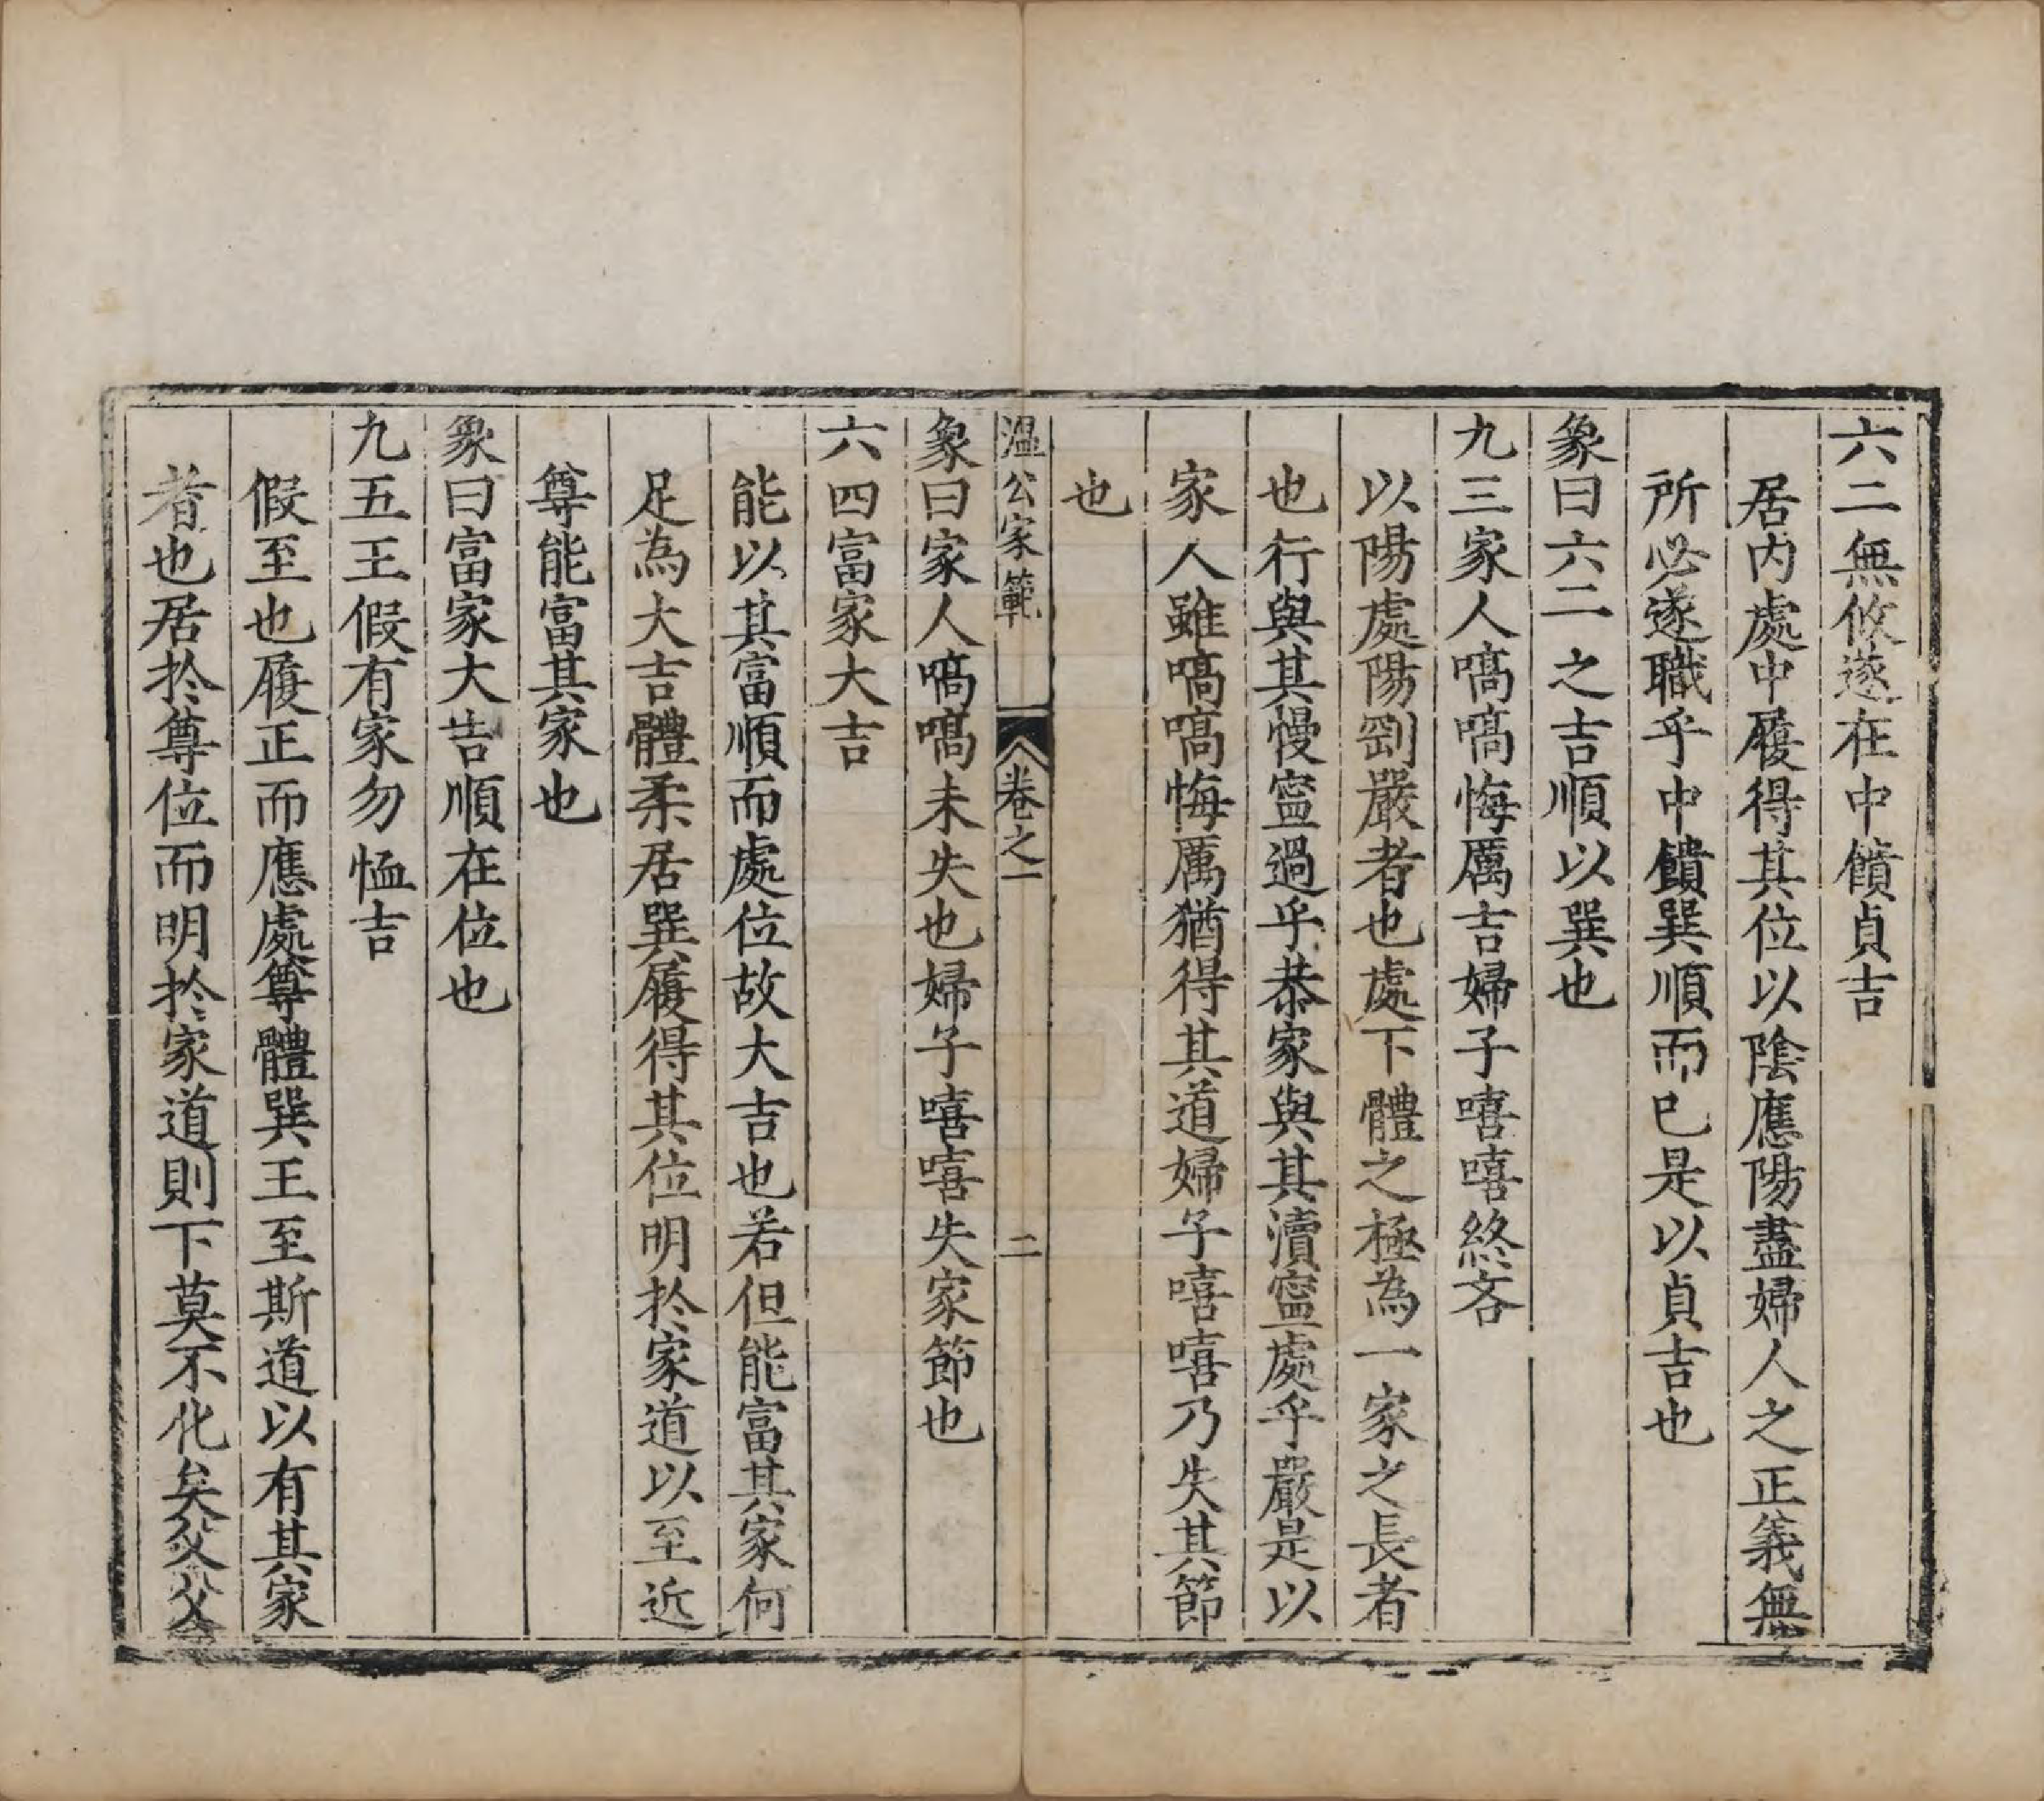 六二無攸遂在中饋貞吉
居内處中履得其位以陰應陽盡婦人之正義無
所必遂職乎中饋巽順而已是以貞吉也
象曰六二之吉順以巽也
九三家人嗃嗃悔厲吉婦子嘻嘻終吝
以陽處陽剛嚴者也處下體之極為一家之長者
也行與其慢寧過乎恭家與其瀆寧處乎嚴是以
家人雖嗃嗃悔厲猶得其道婦子嘻嘻乃失其節
也
溫公家範 卷之一 二
象曰家人嗃嗃未失也婦子嘻嘻失家節也
六四富家大吉
能以其富順而處位故大吉也若但能富其家何
足為大吉體柔居巽履得其位明於家道以至近
尊能富其家也
象曰富家大吉順在位也
九五王假有家勿恤吉
假至也履正而應處尊體巽王至斯道以有其家
者也居於尊位而明於家道則下莫不化矣父父